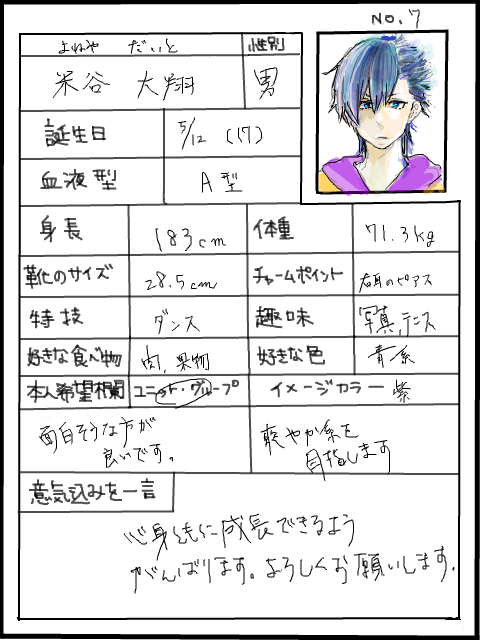 No.7
よねや だいと 性別
米谷 大翔 男
誕生日 5/12 (17)
血液型 A型
身長 183cm 体重 71.3kg
靴のサイズ 28.5cm チャームポイント 右耳のピアス
特技 ダンス 趣味 写真,テニス
好きな食べ物 肉,果物 好きな色 青系
本人希望欄 ユニット・グループ イメージカラー 紫
面白そうな方が 爽やか系を
良いです。 目指します
意気込みを一言
心身共に成長できるよう
がんばります。よろしくお願いします.